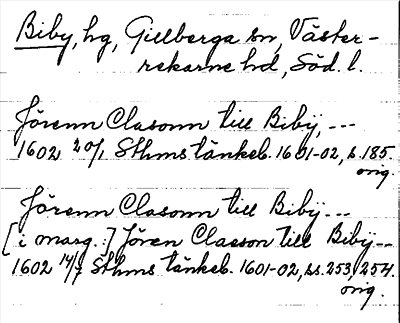 Biby, hg, Gillberga sn, Väster-
rekarne hd, Söd. l.
Jörenn Clasonn till Bibÿ, ---
1602 20/1 Sthms tänkeb. 1601-02, s. 185.
orig.
Jörenn Clasonn till Bibÿ ---
[i marg.:] Jören Claeson till Bibÿ --
1602 14/7 Sthms tänkeb. 1601-02, ss. 253, 254.
orig.